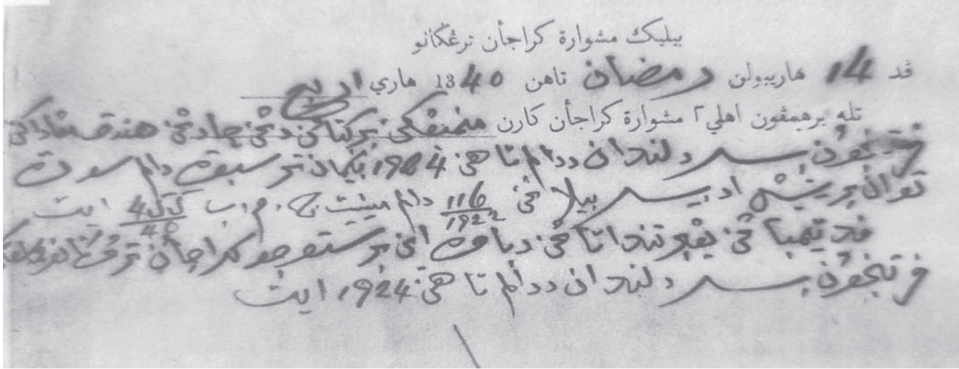 بيليك مشوارة كراجأن ترڠݢانو
ڤد 14 هاريبولن رمضان تاهن 1340 هاري اربع
تله برهيمڤون اهلي٢ مشوارة كراجأن كارن منيمبڠكن بركنائن دڠن چادڠن هندق مڠاداكن
ڤرتنجوقن بسر د لندن ددالم تاهن 1924 بݢيمان ترسبوت دالم سورة
توان بريتيش ادبيسر بيلاڠن 116/1922 دالم مينيت ج. م. ب 4/40 ايت
تندا تاڠن دباوه اين برستوجو كراجأن ترڠݢانو
ڤرتنجوقن بسر د لندن ددالم تاهن 1924 ايت